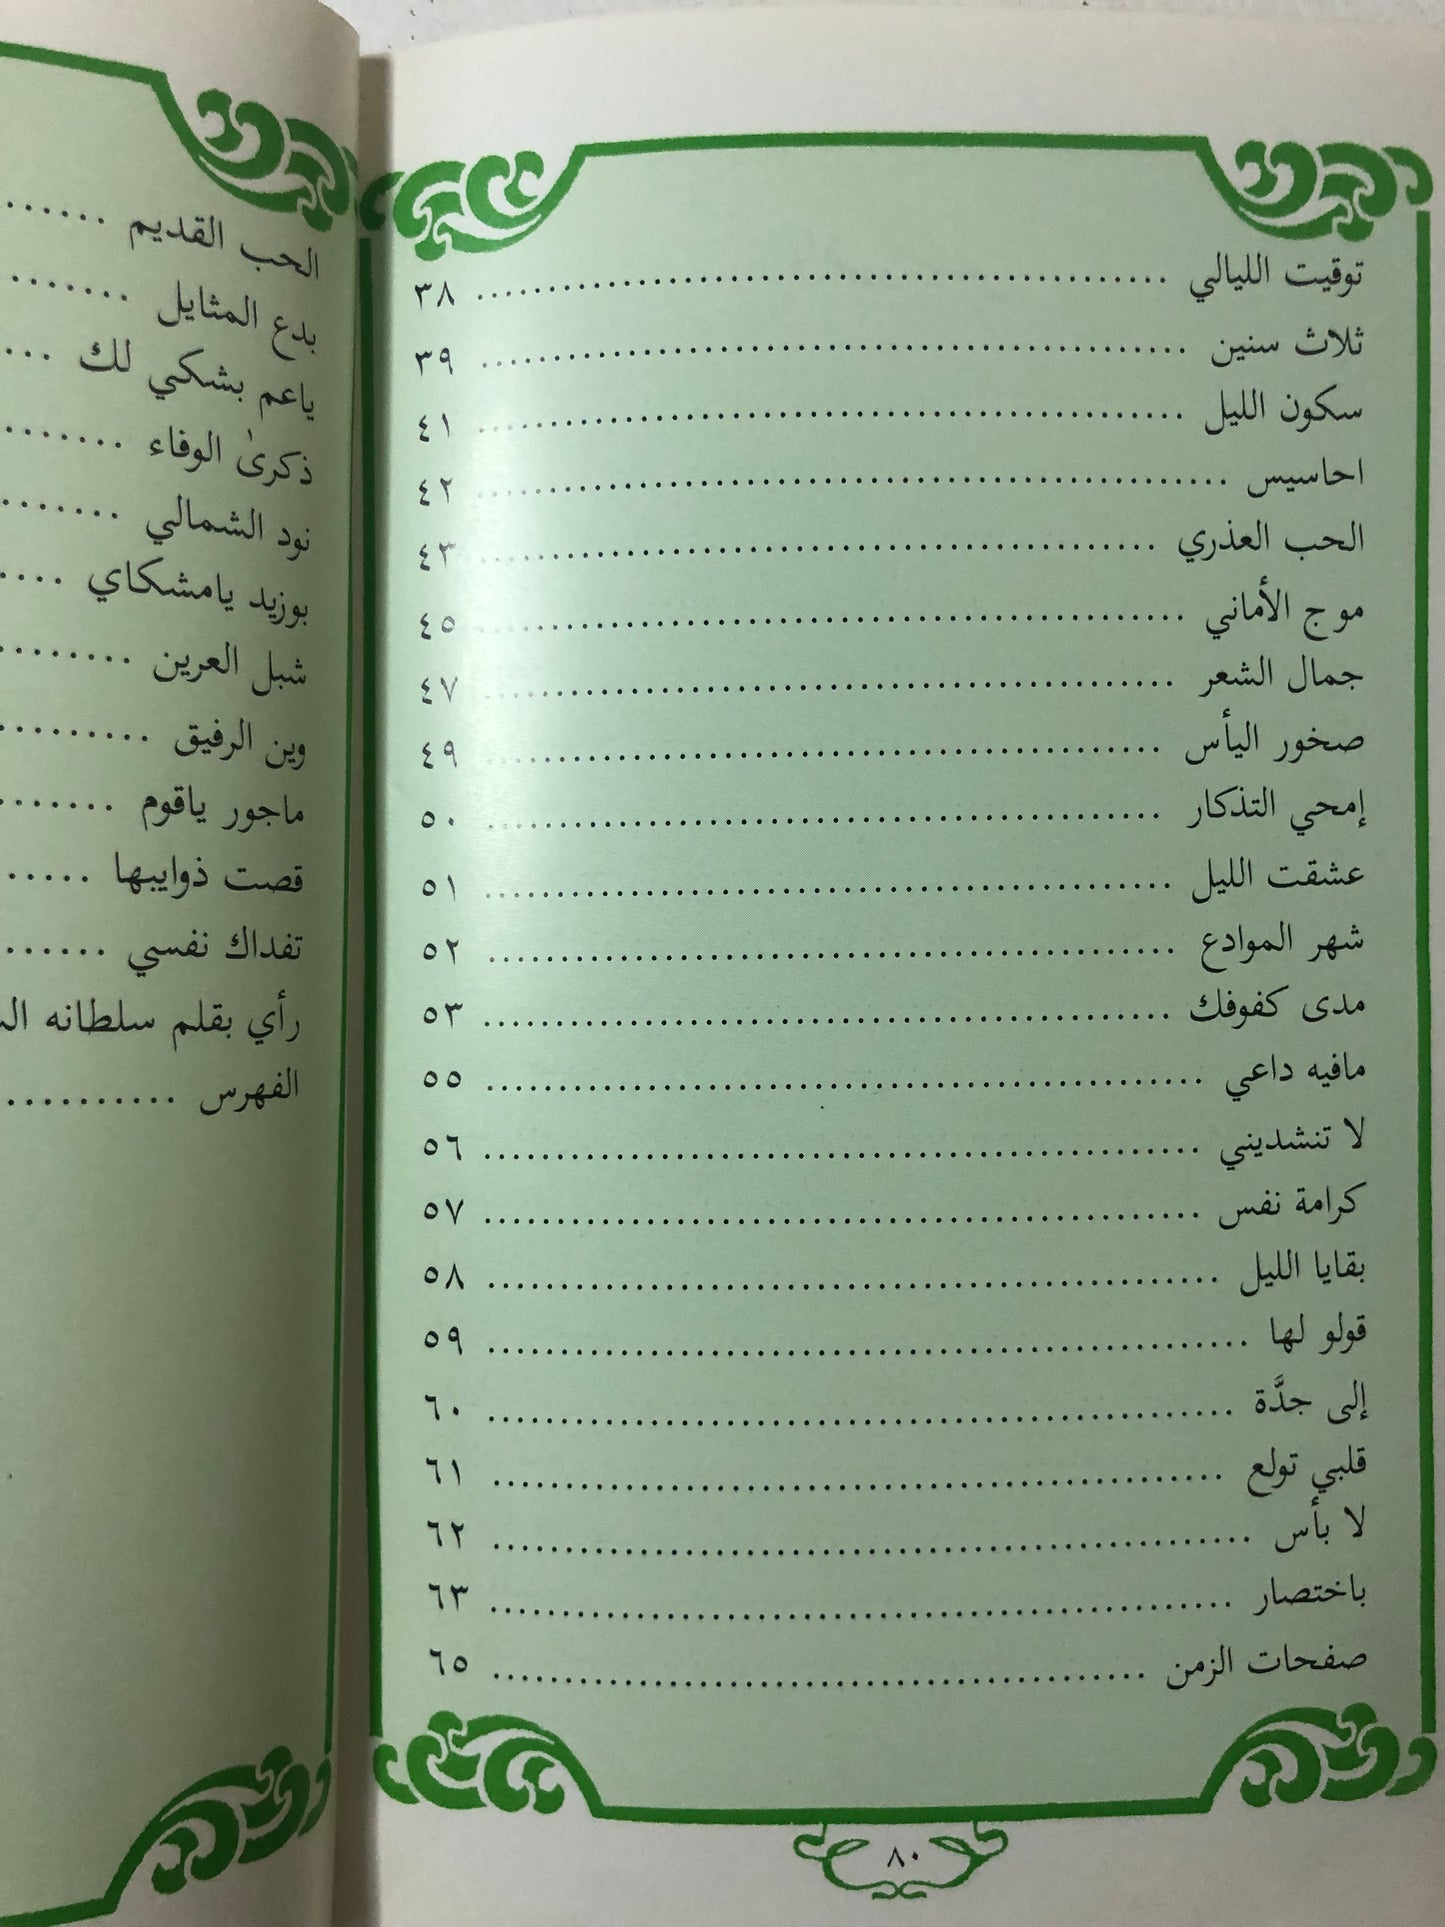 توقيت الليالي ........ ٣٨
ثلاث سنين ........ ٣٩
سكون الليل ........ ٤١
احاسيس ........ ٤٢
الحب العذري ........ ٤٣
موج الأماني ........ ٤٥
جمال الشعر ........ ٤٧
صخور اليأس ........ ٤٩
إمحي التذكار ........ ٥٠
عشقت الليل ........ ٥١
شهر الموادع ........ ٥٢
مدى كفوفك ........ ٥٣
مافيه داعي ........ ٥٥
لا تنشديني ........ ٥٦
كرامة نفس ........ ٥٧
بقايا الليل ........ ٥٨
قولو لها ........ ٥٩
إلى جدَّة ........ ٦٠
قلبي تولع ........ ٦١
لا بأس ........ ٦٢
باختصار ........ ٦٣
صفحات الزمن ........ ٦٥
٨٠
الحب القديم ........
بدع المثايل ........
ياعم بشكي لك ...
ذكرىٰ الوفاء ........
نود الشمالي ........
بوزيد يامشكاي ....
شبل العرين ........
وين الرفيق ........
ماجور ياقوم ........
قصت ذوايبها .....
تفداك نفسي ......
رأي بقلم سلطانه
الفهرس ..........